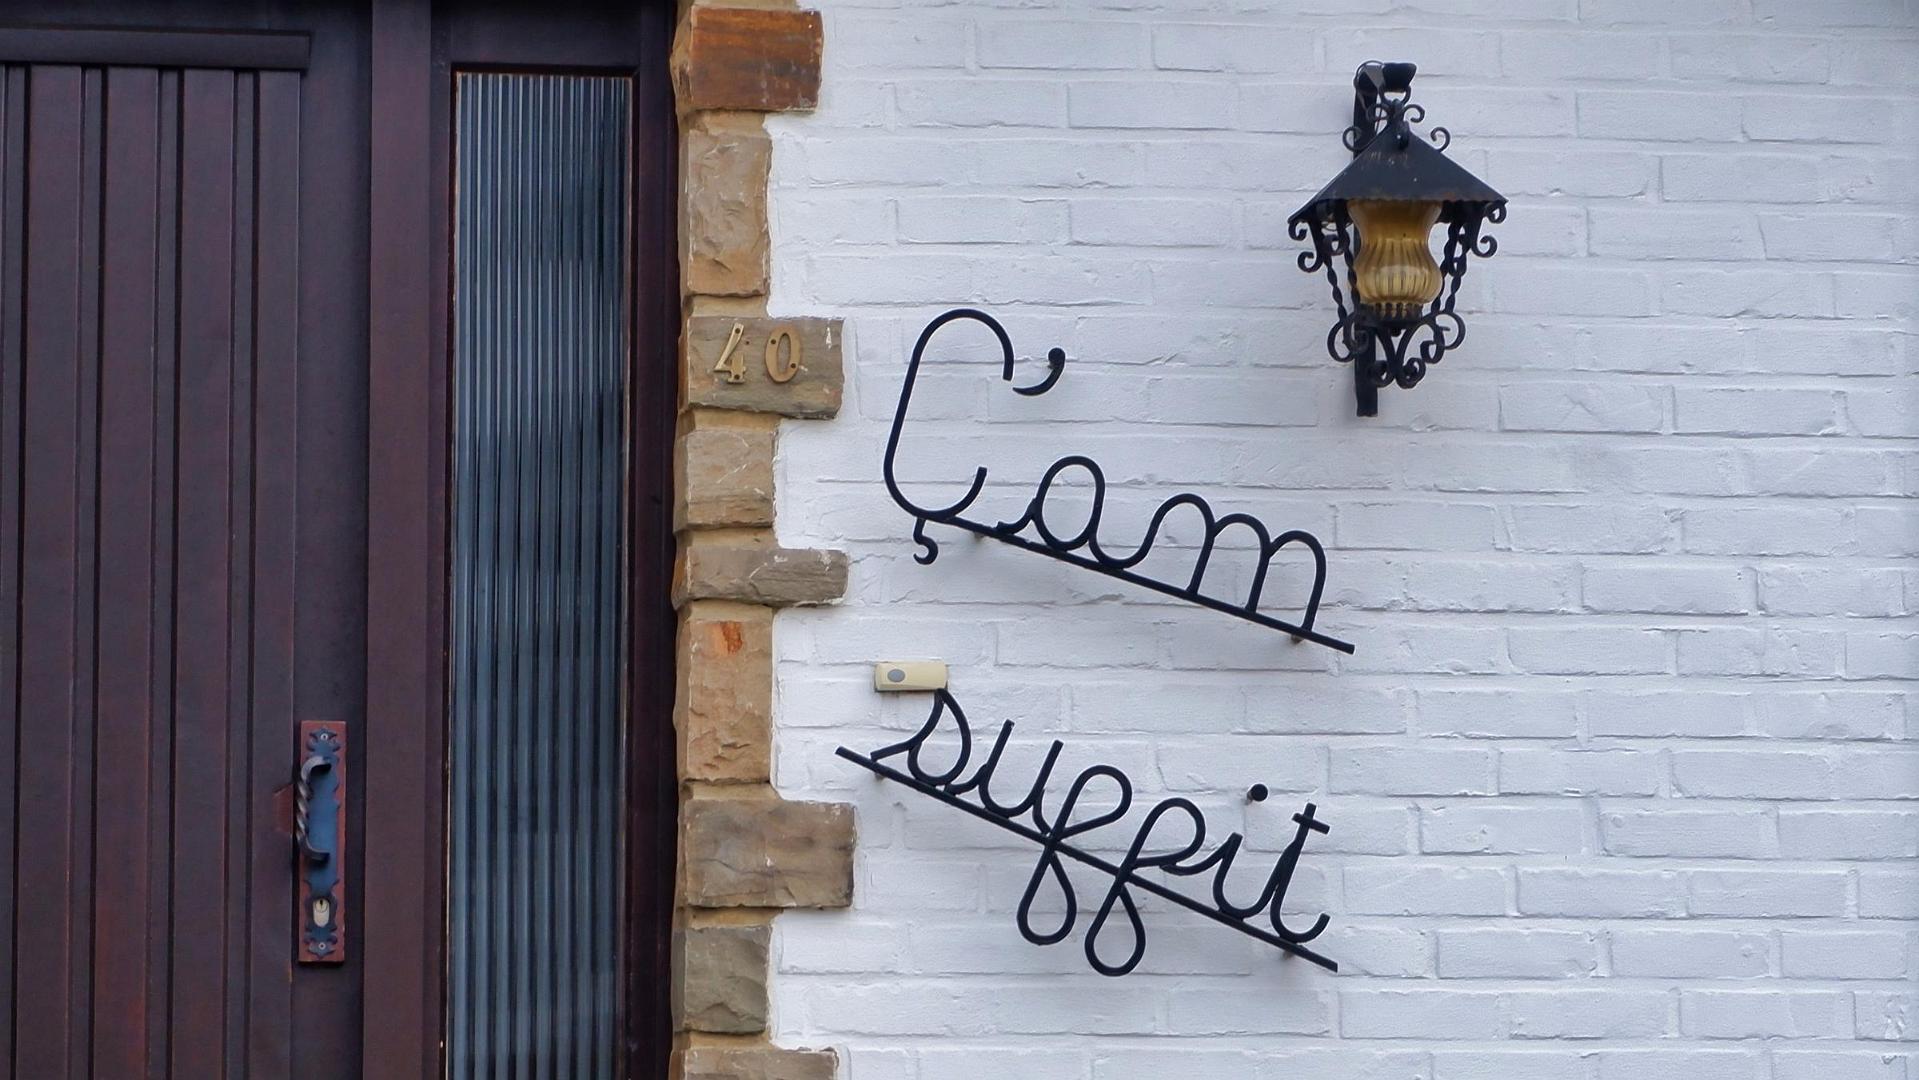 40
Ç'am
suffit